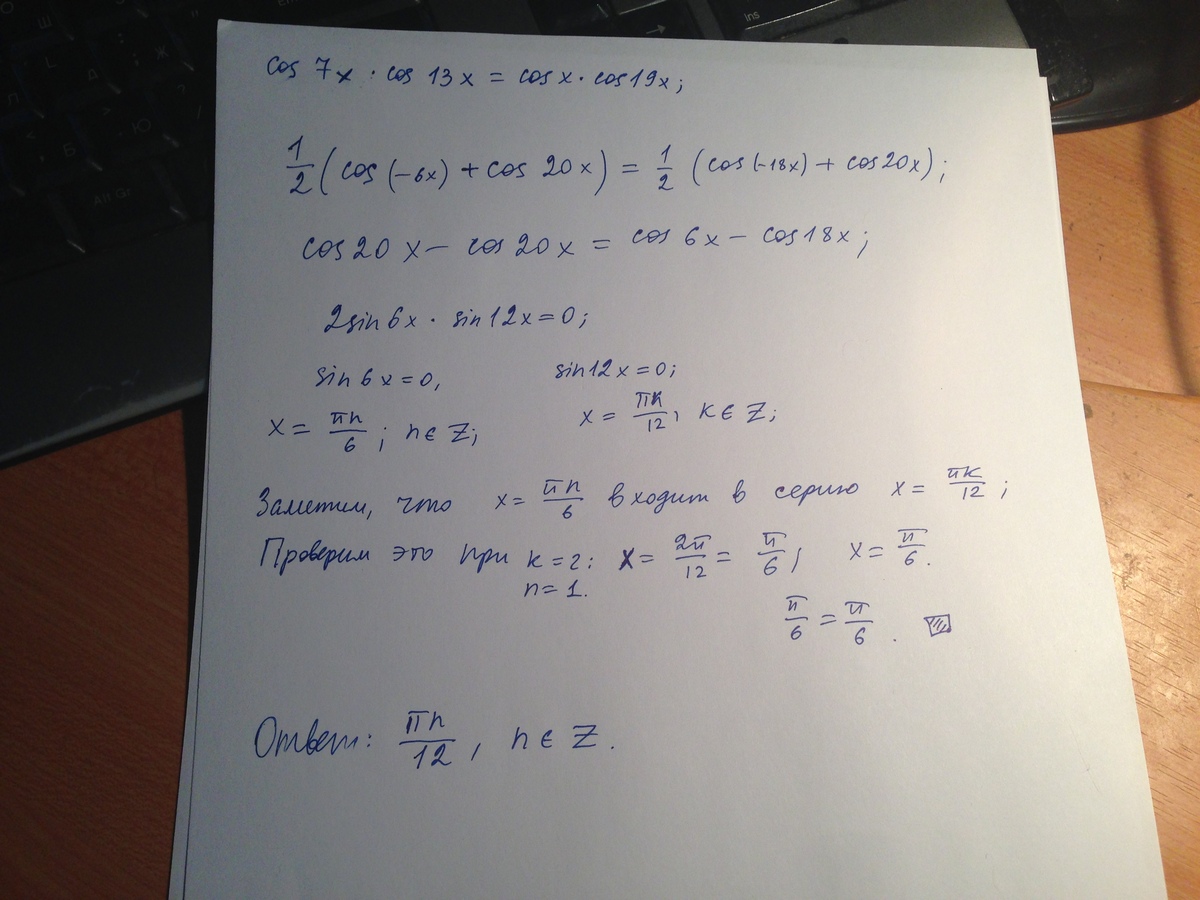 Ins
Alt Gr
cos 7x · cos 13x = cos x · cos 19x;
1/2 (cos(-6x) + cos 20x) = 1/2 (cos(-18x) + cos 20x);
cos 20x - cos 20x = cos 6x - cos 18x;
2 sin 6x · sin 12x = 0;
sin 6x = 0, sin 12x = 0;
x = πn/6; n ∈ Z; x = πk/12, k ∈ Z;
Заметим, что x = πn/6 входит в серию x = πk/12;
Проверим это при k = 2: x = 2π/12 = π/6; x = π/6.
n = 1.
π/6 = π/6.
Ответ: πn/12, n ∈ Z.